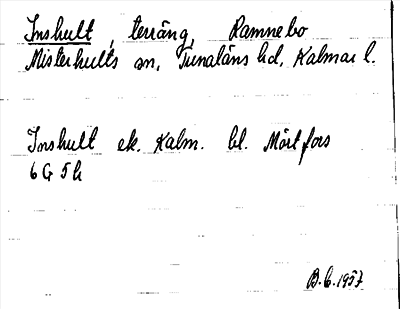 Inshult, terräng, Ramnebo
Misterhults sn, Tunaläns hd, Kalmar l.
Inshult ek. Kalm. bl. Mörtfors
6 G 5 h
B.C. 1957